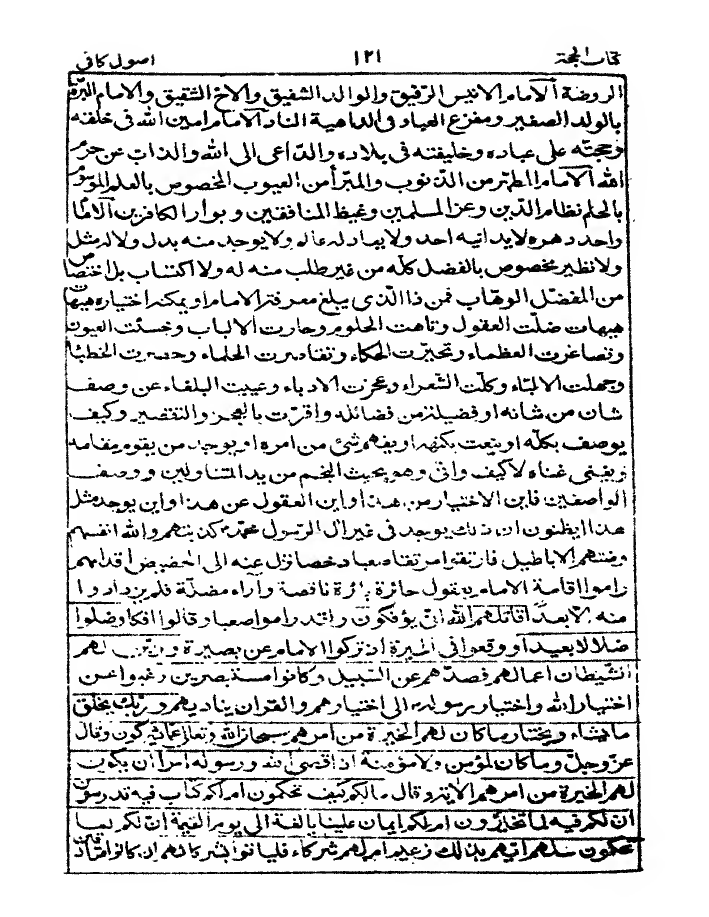 كتاب الحجة ١٢١ اصول كافي
الروضة الامام الانيس الرفيق والوالد الشفيق والاخ الشقيق والامام البرة
بالولد الصغير ومفزع العباد في الداهية الناد الامام امين الله في خلقه
وحجته على عباده وخليفته في بلاده والداعي الى الله والذاب عن حرم
الله الامام المطهر من الذنوب والمبرأ من العيوب المخصوص بالعلم الموسوم
بالحلم نظام الدين وعز المسلمين وغيظ المنافقين وبوار الكافرين الامام
واحد دهره لا يدانيه احد ولا يعادله عالم ولا يوجد منه بدل ولا له مثل
ولا نظير مخصوص بالفضل كله من غير طلب منه له ولا اكتساب بل اختصاص
من المفضل الوهاب فمن ذا الذي يبلغ معرفة الامام او يمكنه اختياره هيهات
هيهات ضلت العقول وتاهت الحلوم وحارت الالباب وخسئت العيون
وتصاغرت العظماء وتحيرت الحكماء وتقاصرت الحلماء وحصرت الخطباء
وجهلت الالباء وكلت الشعراء وعجزت الادباء وعييت البلغاء عن وصف
شان من شانه او فضيلة من فضائله واقرت بالعجز والتقصير وكيف
يوصف بكله او ينعت بكنهه او يفهم شئ من امره او يوجد من يقوم مقامه
ويغني غناه لا كيف وانى وهو بحيث النجم من يد المتناولين ووصف
الواصفين فاين الاختيار من هذا واين العقول عن هذا واين يوجد مثل
هذا اتظنون ان ذلك يوجد في غير ال الرسول محمد كذبتهم والله انفسهم
ومنتهم الاباطيل فارتقوا مرتقا صعبا دحضا تزل عنه الى الحضيض اقدامهم
راموا اقامة الامام بعقول حائرة بائرة ناقصة وآراء مضلة فلم يزدادوا
منه الا بعدا قاتلهم الله انى يؤفكون ولقد راموا صعبا وقالوا افكا وضلوا
ضلالا بعيدا ووقعوا في الحيرة اذ تركوا الامام عن بصيرة وزين لهم
الشيطان اعمالهم فصدهم عن السبيل وكانوا مستبصرين رغبوا عن
اختيار الله واختيار رسوله الى اختيارهم والقران يناديهم وربك يخلق
ما يشاء ويختار ما كان لهم الخيرة من امرهم سبحان الله وتعالى عما يشركون وقال
عز وجل وما كان لمؤمن ولا مؤمنة اذا قضى الله ورسوله امرا ان يكون
لهم الخيرة من امرهم الاية وقال مالكم كيف تحكمون ام لكم كتاب فيه تدرسون
ان لكم فيه لما تخيرون ام لكم ايمان علينا بالغة الى يوم القيمة ان لكم لما
تحكمون سلهم ايهم بذلك زعيم ام لهم شركاء فلياتوا بشركائهم ان كانوا صادقين